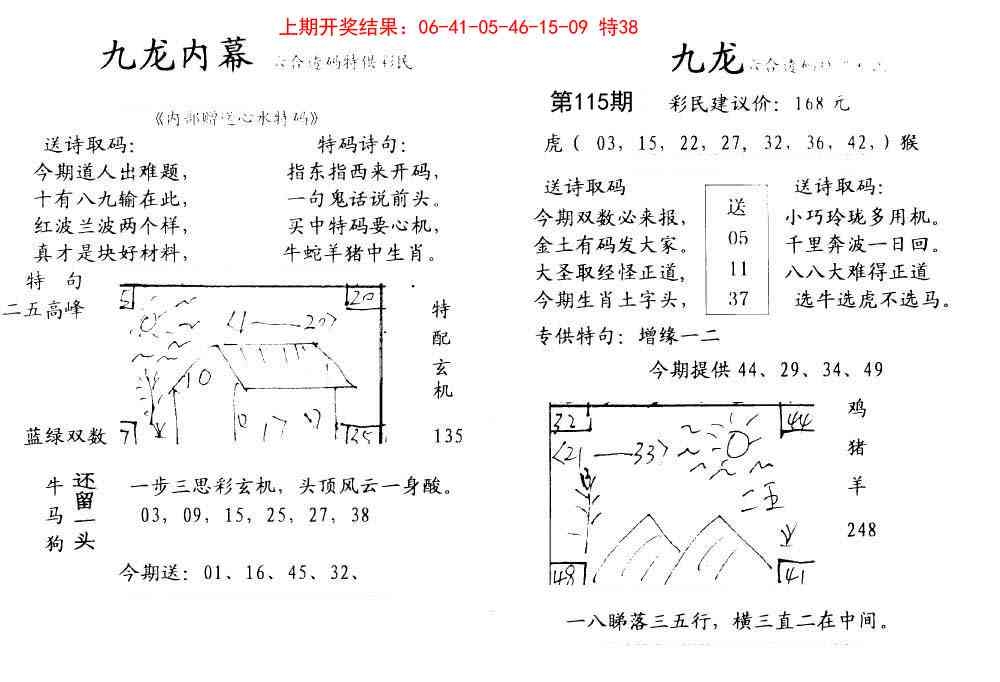 上期开奖结果：06-41-05-46-15-09 特38
九龙内幕
六合透码特供彩民
《内部赠送心水特码》
送诗取码：
今期道人出难题，
十有八九输在此，
红波兰波两个样，
真才是块好材料，
特码诗句：
指东指西来开码，
一句鬼话说前头。
买中特码要心机，
牛蛇羊猪中生肖。
特 句
二五高峰
蓝绿双数
5
20
<1——20>
10
0
17
71
35
特配玄机
135
牛马狗
还留一头
一步三思彩玄机，头顶风云一身酸。
03，09，15，25，27，38
今期送：01、16、45、32、
九龙
第115期
彩民建议价：168元
虎（ 03，15，22，27，32，36，42，）猴
送诗取码
今期双数必来报，
金土有码发大家。
大圣取经怪正道，
今期生肖土字头，
送
05
11
37
送诗取码：
小巧玲珑多用机。
千里奔波一日回。
八八大难得正道
选牛选虎不选马。
专供特句：增缘一二
今期提供 44、29、34、49
32
44
<21——33>
48
41
鸡
猪
羊
248
一八睇落三五行，横三直二在中间。